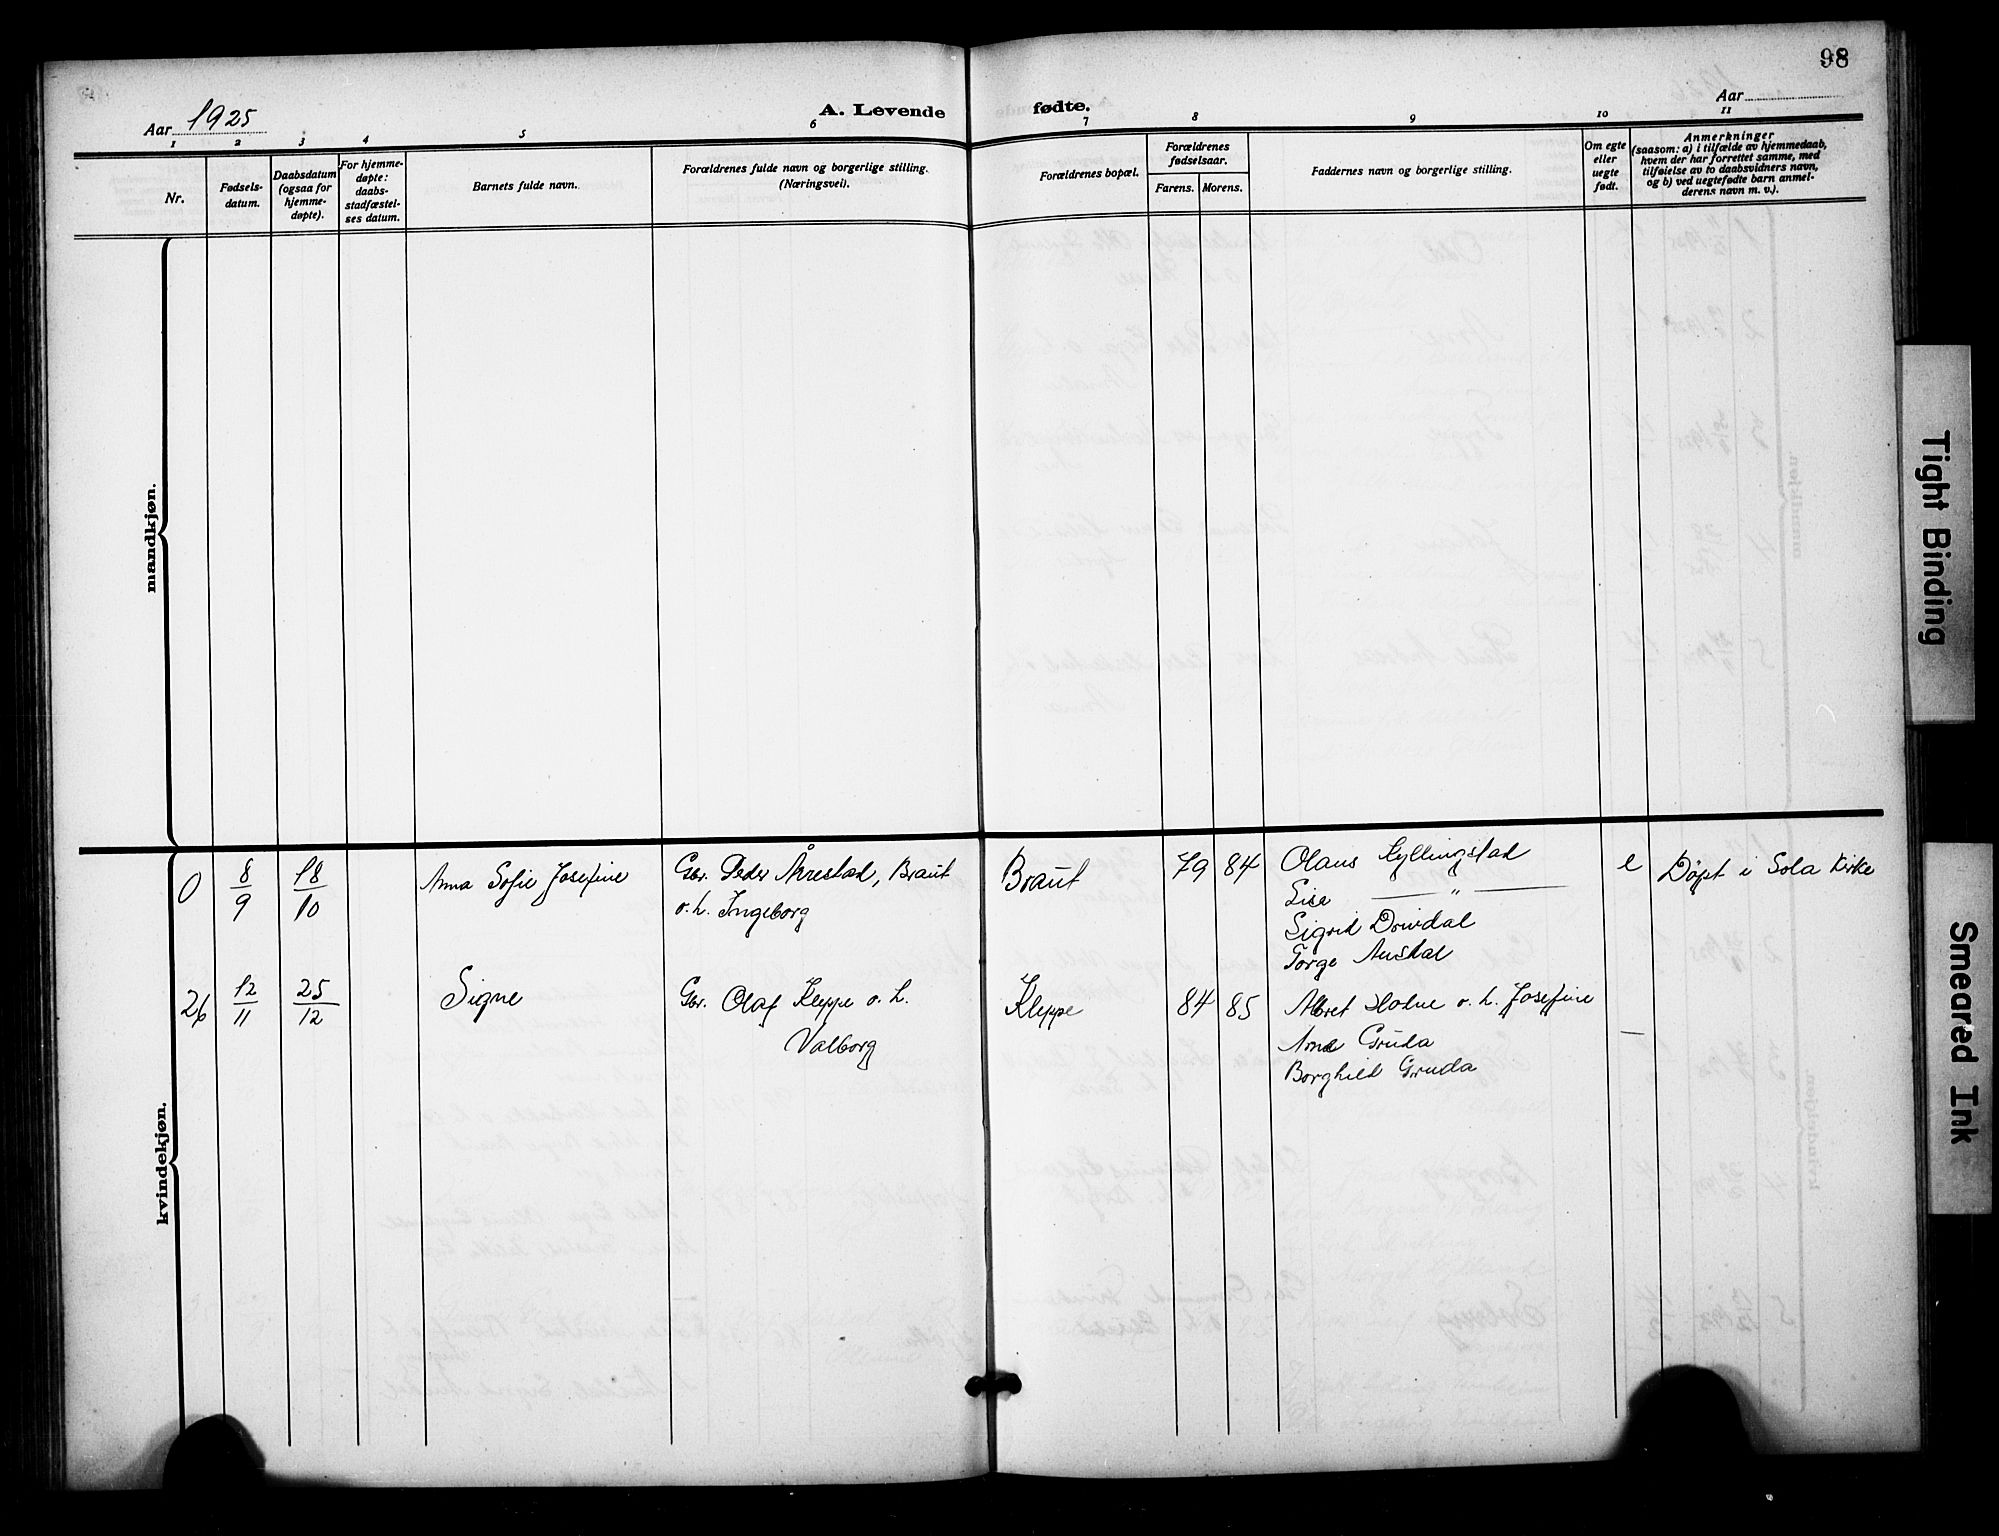 98
Aar 1925
A. Levende fødte.
Aar
1 2 3 4 5 6 7 8 9 10 11
Nr.
Fødsels-
datum.
Daabsdatum
(ogsaa for
hjemme-
døpte).
For hjemme-
døpte:
daabs-
stadfæstel-
ses datum.
Barnets fulde navn.
Forældrenes fulde navn og borgerlige stilling.
(Næringsvei).
Forældrenes bopæl.
Forældrenes
fødselsaar.
Farens. Morens.
Faddernes navn og borgerlige stilling.
Om egte
eller
uegte
født.
Anmerkninger
(saasom: a) i tilfælde av hjemmedaab,
hvem der har forrettet samme, med
tilføielse av to daabsvidners navn,
og b) ved uegtefødte barn anmel-
derens navn m. v.).
mandkjøn.
kvindekjøn.
0 8/9 18/10 Anna Sofie Josefine Gbr. Peder Årrestad, Braut Braut 79 84 Olaus Kyllingstad e Døpt i Sola Kirke
o. h. Ingeborg Lise — " —
Sigrid
Torge Austad
26 12/11 25/12 Signe Gbr. Olaf Kleppe o. h. Kleppe 84 85 Albret Holme o. h. Josefine —
Valborg Arne Gruda
Borghild Gruda
Tight Binding
Smeared Ink